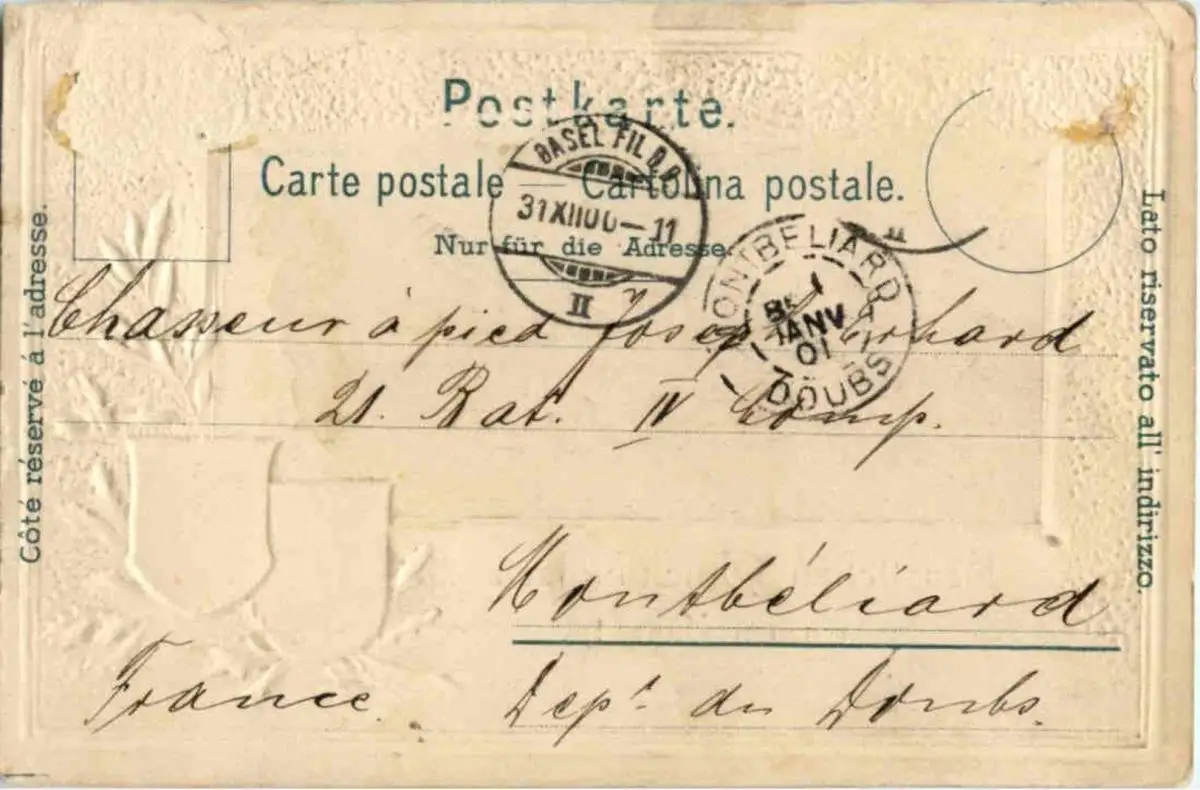 Postkarte.
Carte postale — Cartolina postale.
Nur für die Adresse.
Côté réservé á l'adresse.
Lato riservato all' indirizzo.
BASEL FIL.
31 XII 00 — 11
II
MONTBELIARD
1
JANV
01
DOUBS
Chasseur à pied Joseph Erhard
21. Bat. IV Comp.
Montbéliard
France. Dept. du Doubs.